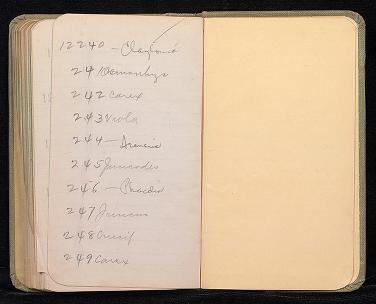 12240 - Claytonia
241
242 Carex
243 Viola
244 - Arenaria
245 Juncodes
246 - Phacelia
247 Juncus
248 Crucif
249 Carex